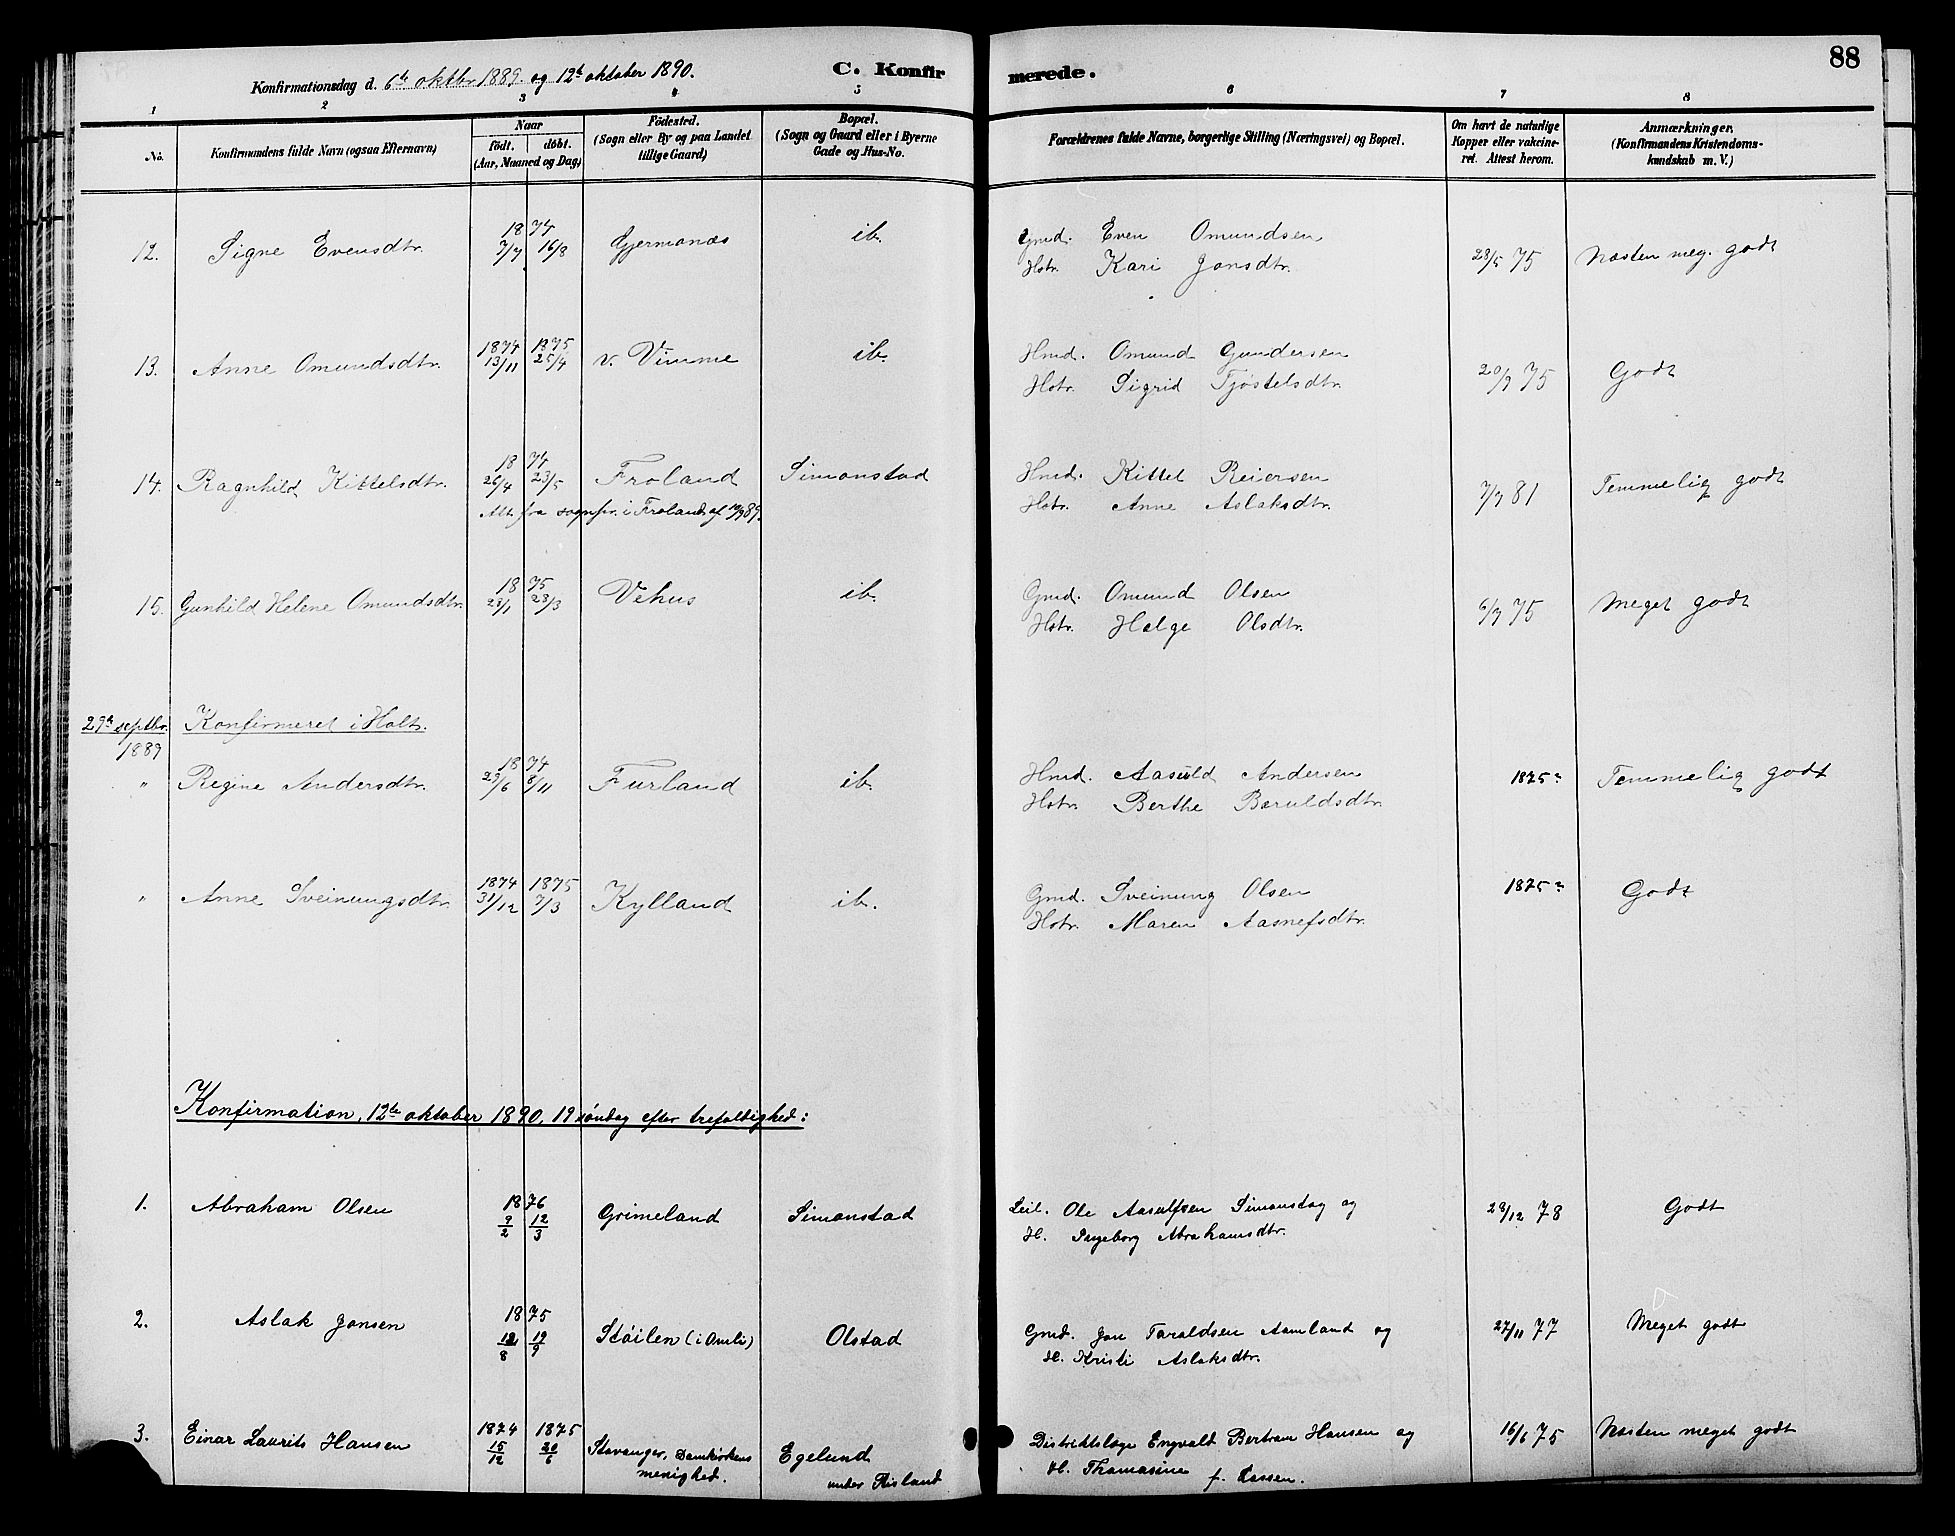 88
Konfirmationsdag d. 6te oktbr 1889. og 12te oktober 1890. C. Konfirmerede.
1 2 3 4 5 6 7 8
No. Konfirmandens fulde Navn (ogsaa Efternavn) Naar födt. döbt. (Aar, Maaned og Dag) Födested. (Sogn eller By og paa Landet tillige Gaard) Bopæl. (Sogn og Gaard eller i Byerne Gade og Hus-No. Forældrenes fulde Navne, borgerlige Stilling (Næringsvei) og Bopæl. Om havt de naturlige Kopper eller vakcineret. Attest herom. Anmærkninger. (Konfirmandens Kristendomskundskab m. V.)
12. Signe Evensdtr. 1874 7/7 16/8 Gjermonæs ib. Gmd. Even Omundsen 28/5 75 Næsten meg. godt
Hstr. Kari Jonsdtr.
13. Anne Omundsdtr. 1874 13/11 1875 25/4 v. Vimme ib. Hmd. Omund Gundersen 20/9 75 Godt
Hstr. Sigrid Tjöstelsdtr.
14. Ragnhild Kittelsdtr. 1874 26/4 23/5 Froland Simonstad Hmd. Kittel Reiersen 7/7 81 Temmelig godt
Att. fra sognepr. i Froland af 89. Hstr. Anne Aslaksdtr.
15. Gunhild Helene Omundsdtr. 1875 23/1 28/3 Vehus ib. Gmd. Omund Olsen 6/7 75 Meget godt
Hstr. Helge Olsdtr.
29de septbr. 1889 Konfirmeret i Holt.
" Regine Andersdtr. 1874 29/6 8/11 Furland ib. Hmd. Aasuld Andersen 1875 Temmelig godt
Hstr. Berthe Beruldsdtr.
" Anne Sveinungsdtr. 1874 31/12 1875 7/3 Kylland ib. Gmd. Sveinung Olsen 1875 Godt
Hstr. Maren Aasnefsdtr.
Konfirmation, 12te oktober 1890, 19 söndag efter trefoldighed:
1. Abraham Olsen 1876 9/2 12/3 Grimeland Simonstad Leil. Ole Aasulfsen Simonstag og 29/12 78 Godt
H. Ingeborg Abrahamsdtr.
2. Aslak Jonsen 1875 12/8 19/9 Stöilen (i Omli) Olstad Gmd. Jon Taraldsen Aamland og 27/11 77 Meget godt
H. Kristi Aslaksdtr.
3. Einar Laurits Hansen 1874 15/12 1875 20/6 Stavanger, Domkirkens menighed. Egelund under Risland Distriktslæge Engvald Bertram Hansen og 16/6 75 Næsten meget godt
H. Thomasine f. Lassen.